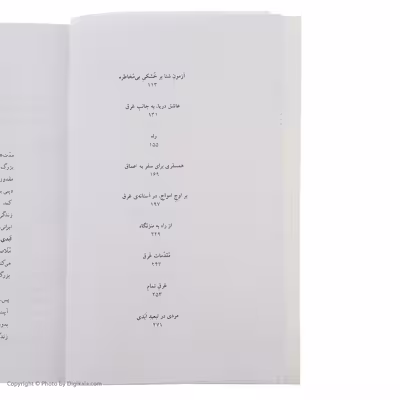 آزمون شنا بر خشکی بی‌مخاطره
۱۱۳
عاشق دریا، به جانب غرق
۱۳۱
راه
۱۵۵
همسفری برای سفر به اعماق
۱۶۹
بر اوج امواج، در آستانه‌ی غرق
۱۹۷
از راه به منزلگاه
۲۲۹
مقدمات غرق
۲۴۳
غرق تمام
۲۵۳
مردی در تبعید ابدی
۲۷۱
مدت‌ها
بزرگ
دینی
کند.
زندگی
ایرانی
بزرگ
Copyright © Photo by Digikala.com